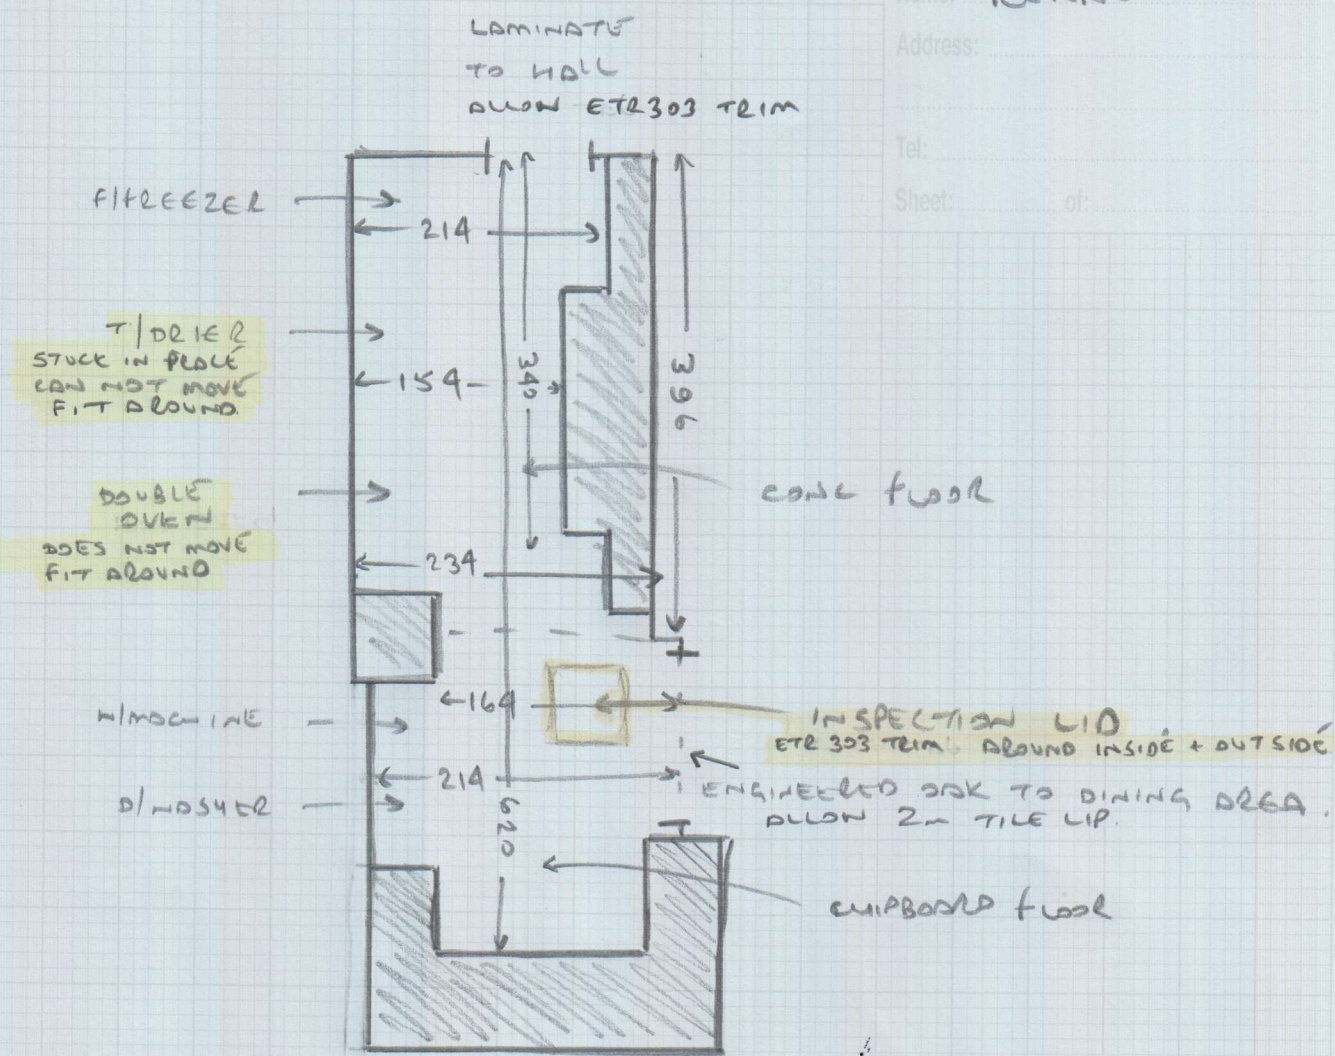 Address:
LAMINATE
TO HALL
ALLOW ETR303 TRIM
Tel:
Sheet: of:
F/FREEZER
214
T/DRIER
STUCK IN PLACE
CAN NOT MOVE
FIT AROUND.
154
340
396
DOUBLE
OVEN
DOES NOT MOVE
FIT AROUND
CONC FLOOR
234
W/MACHINE
164
INSPECTION LID
ETR 303 TRIM AROUND INSIDE + OUTSIDE
D/WASHER
214
ENGINEERED OAK TO DINING AREA.
ALLOW 2m TILE LIP.
620
CHIPBOARD FLOOR